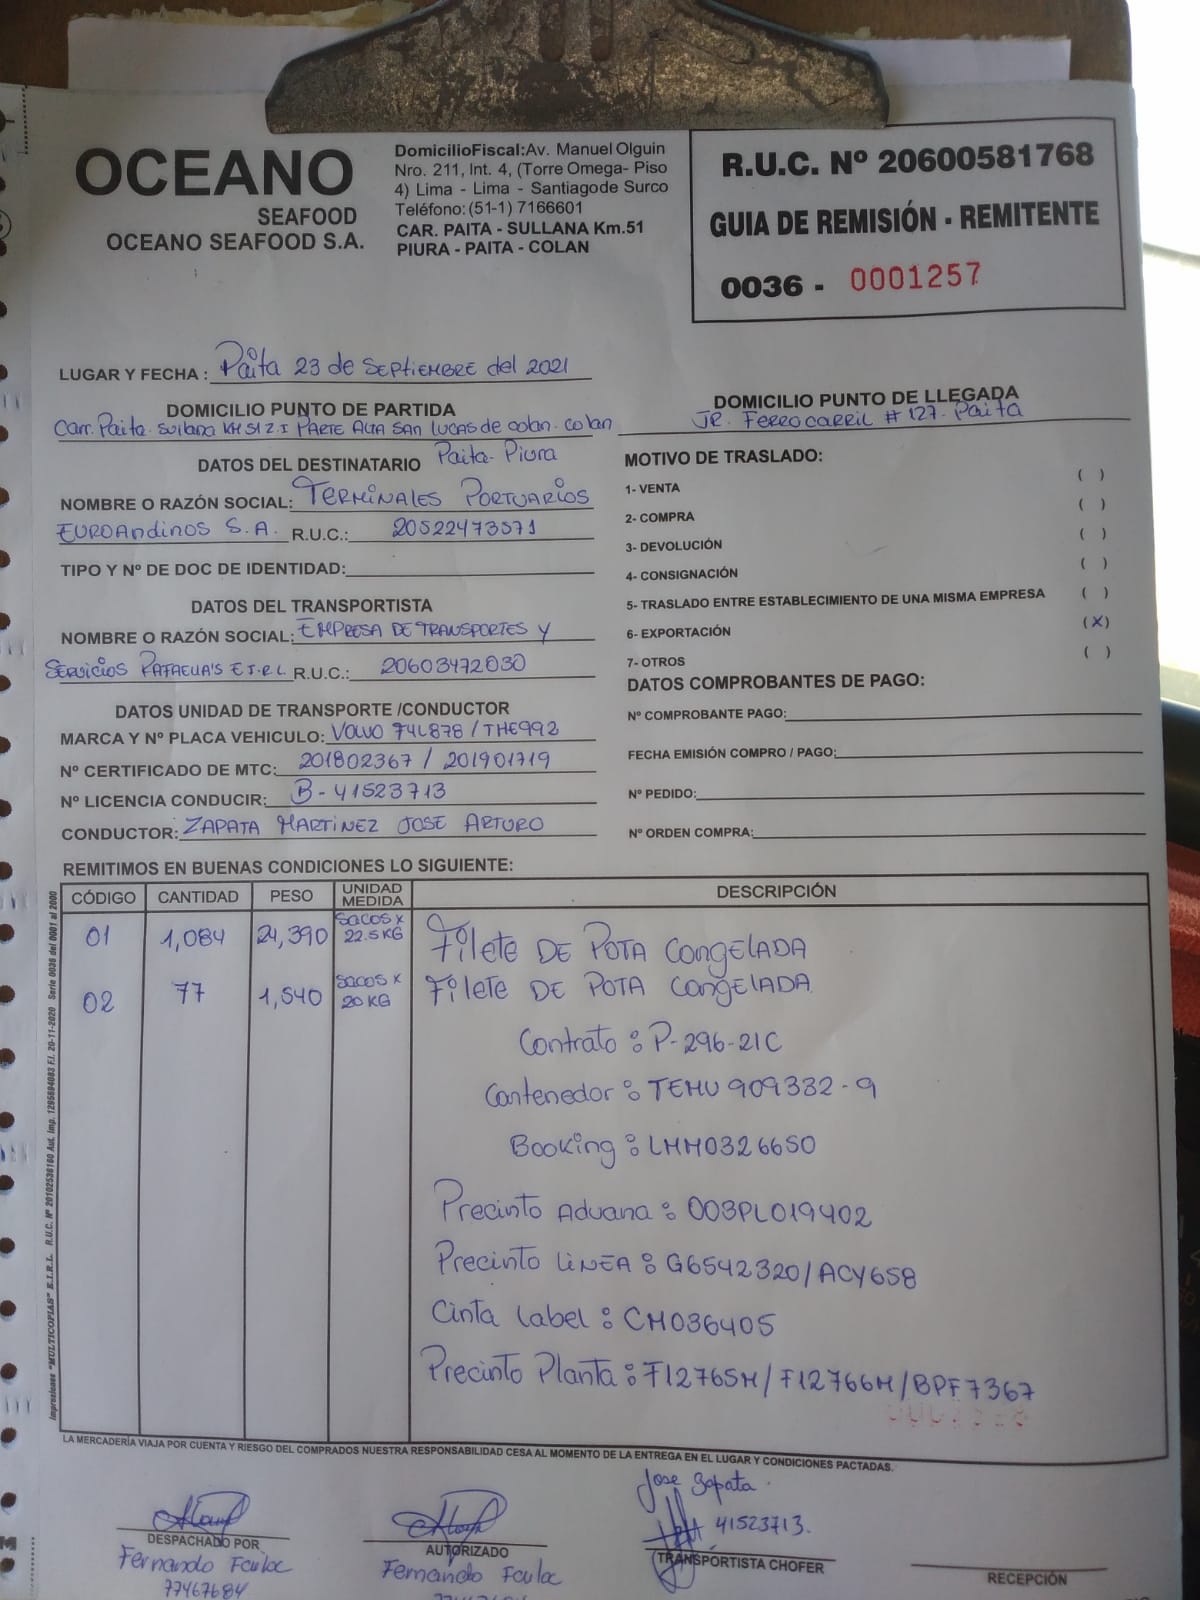 OCEANO
SEAFOOD
OCEANO SEAFOOD S.A.
DomicilioFiscal:Av. Manuel Olguin
Nro. 211, Int. 4, (Torre Omega- Piso
4) Lima - Lima - Santiagode Surco
Teléfono: (51-1) 7166601
CAR. PAITA - SULLANA Km.51
PIURA - PAITA - COLAN
R.U.C. Nº 20600581768
GUIA DE REMISIÓN - REMITENTE
0036 - 0001257
LUGAR Y FECHA : Paita 23 de Septiembre del 2021
DOMICILIO PUNTO DE PARTIDA
Carr. Paita - Sullana KM 51 Z.I PARTE ALTA SAN LUCAS de colan. colan
Paita - Piura
DOMICILIO PUNTO DE LLEGADA
JR. Ferrocarril # 127. Paita
DATOS DEL DESTINATARIO
NOMBRE O RAZÓN SOCIAL: Terminales Portuarios
Euroandinos S.A. R.U.C.: 20522473571
TIPO Y Nº DE DOC DE IDENTIDAD:
DATOS DEL TRANSPORTISTA
NOMBRE O RAZÓN SOCIAL: EMPRESA DE TRANSPORTES Y
Servicios Rafaella's E.I.R.L R.U.C.: 20603472030
DATOS UNIDAD DE TRANSPORTE /CONDUCTOR
MARCA Y Nº PLACA VEHICULO: Volvo F4L878 / THE992
Nº CERTIFICADO DE MTC: 201802367 / 201901719
Nº LICENCIA CONDUCIR: B - 41523713
CONDUCTOR: ZAPATA MARTINEZ JOSE ARTURO
MOTIVO DE TRASLADO:
1- VENTA ( )
2- COMPRA ( )
3- DEVOLUCIÓN ( )
4- CONSIGNACIÓN ( )
5- TRASLADO ENTRE ESTABLECIMIENTO DE UNA MISMA EMPRESA ( )
6- EXPORTACIÓN (X)
7- OTROS ( )
DATOS COMPROBANTES DE PAGO:
Nº COMPROBANTE PAGO:
FECHA EMISIÓN COMPRO / PAGO:
Nº PEDIDO:
Nº ORDEN COMPRA:
REMITIMOS EN BUENAS CONDICIONES LO SIGUIENTE:
CÓDIGO CANTIDAD PESO UNIDAD MEDIDA DESCRIPCIÓN
01 1,084 24,390 Sacos x 22.5 KG Filete DE POTA CONGELADA
02 77 1,540 Sacos x 20 KG Filete DE POTA CONGELADA
Contrato : P-296-21C
Contenedor : TEMU 909332-9
Booking : LMM0326650
Precinto Aduana : 003PL019402
Precinto LINEA : G6542320/ACY658
Cinta Label : CM036405
Precinto Planta : F12765M/F12766M/BPF7367
Impresiones "MULTICOPIAS" E.I.R.L. R.U.C. Nº 20102536160 Aut. Imp. 1295694083 F.I. 20-11-2020 Serie 0036 del 0001 al 2000
LA MERCADERÍA VIAJA POR CUENTA Y RIESGO DEL COMPRADOS NUESTRA RESPONSABILIDAD CESA AL MOMENTO DE LA ENTREGA EN EL LUGAR Y CONDICIONES PACTADAS.
DESPACHADO POR
Fernando
77467684
AUTORIZADO
Fernando
Jose Zapata.
41523713.
TRANSPORTISTA CHOFER
RECEPCIÓN